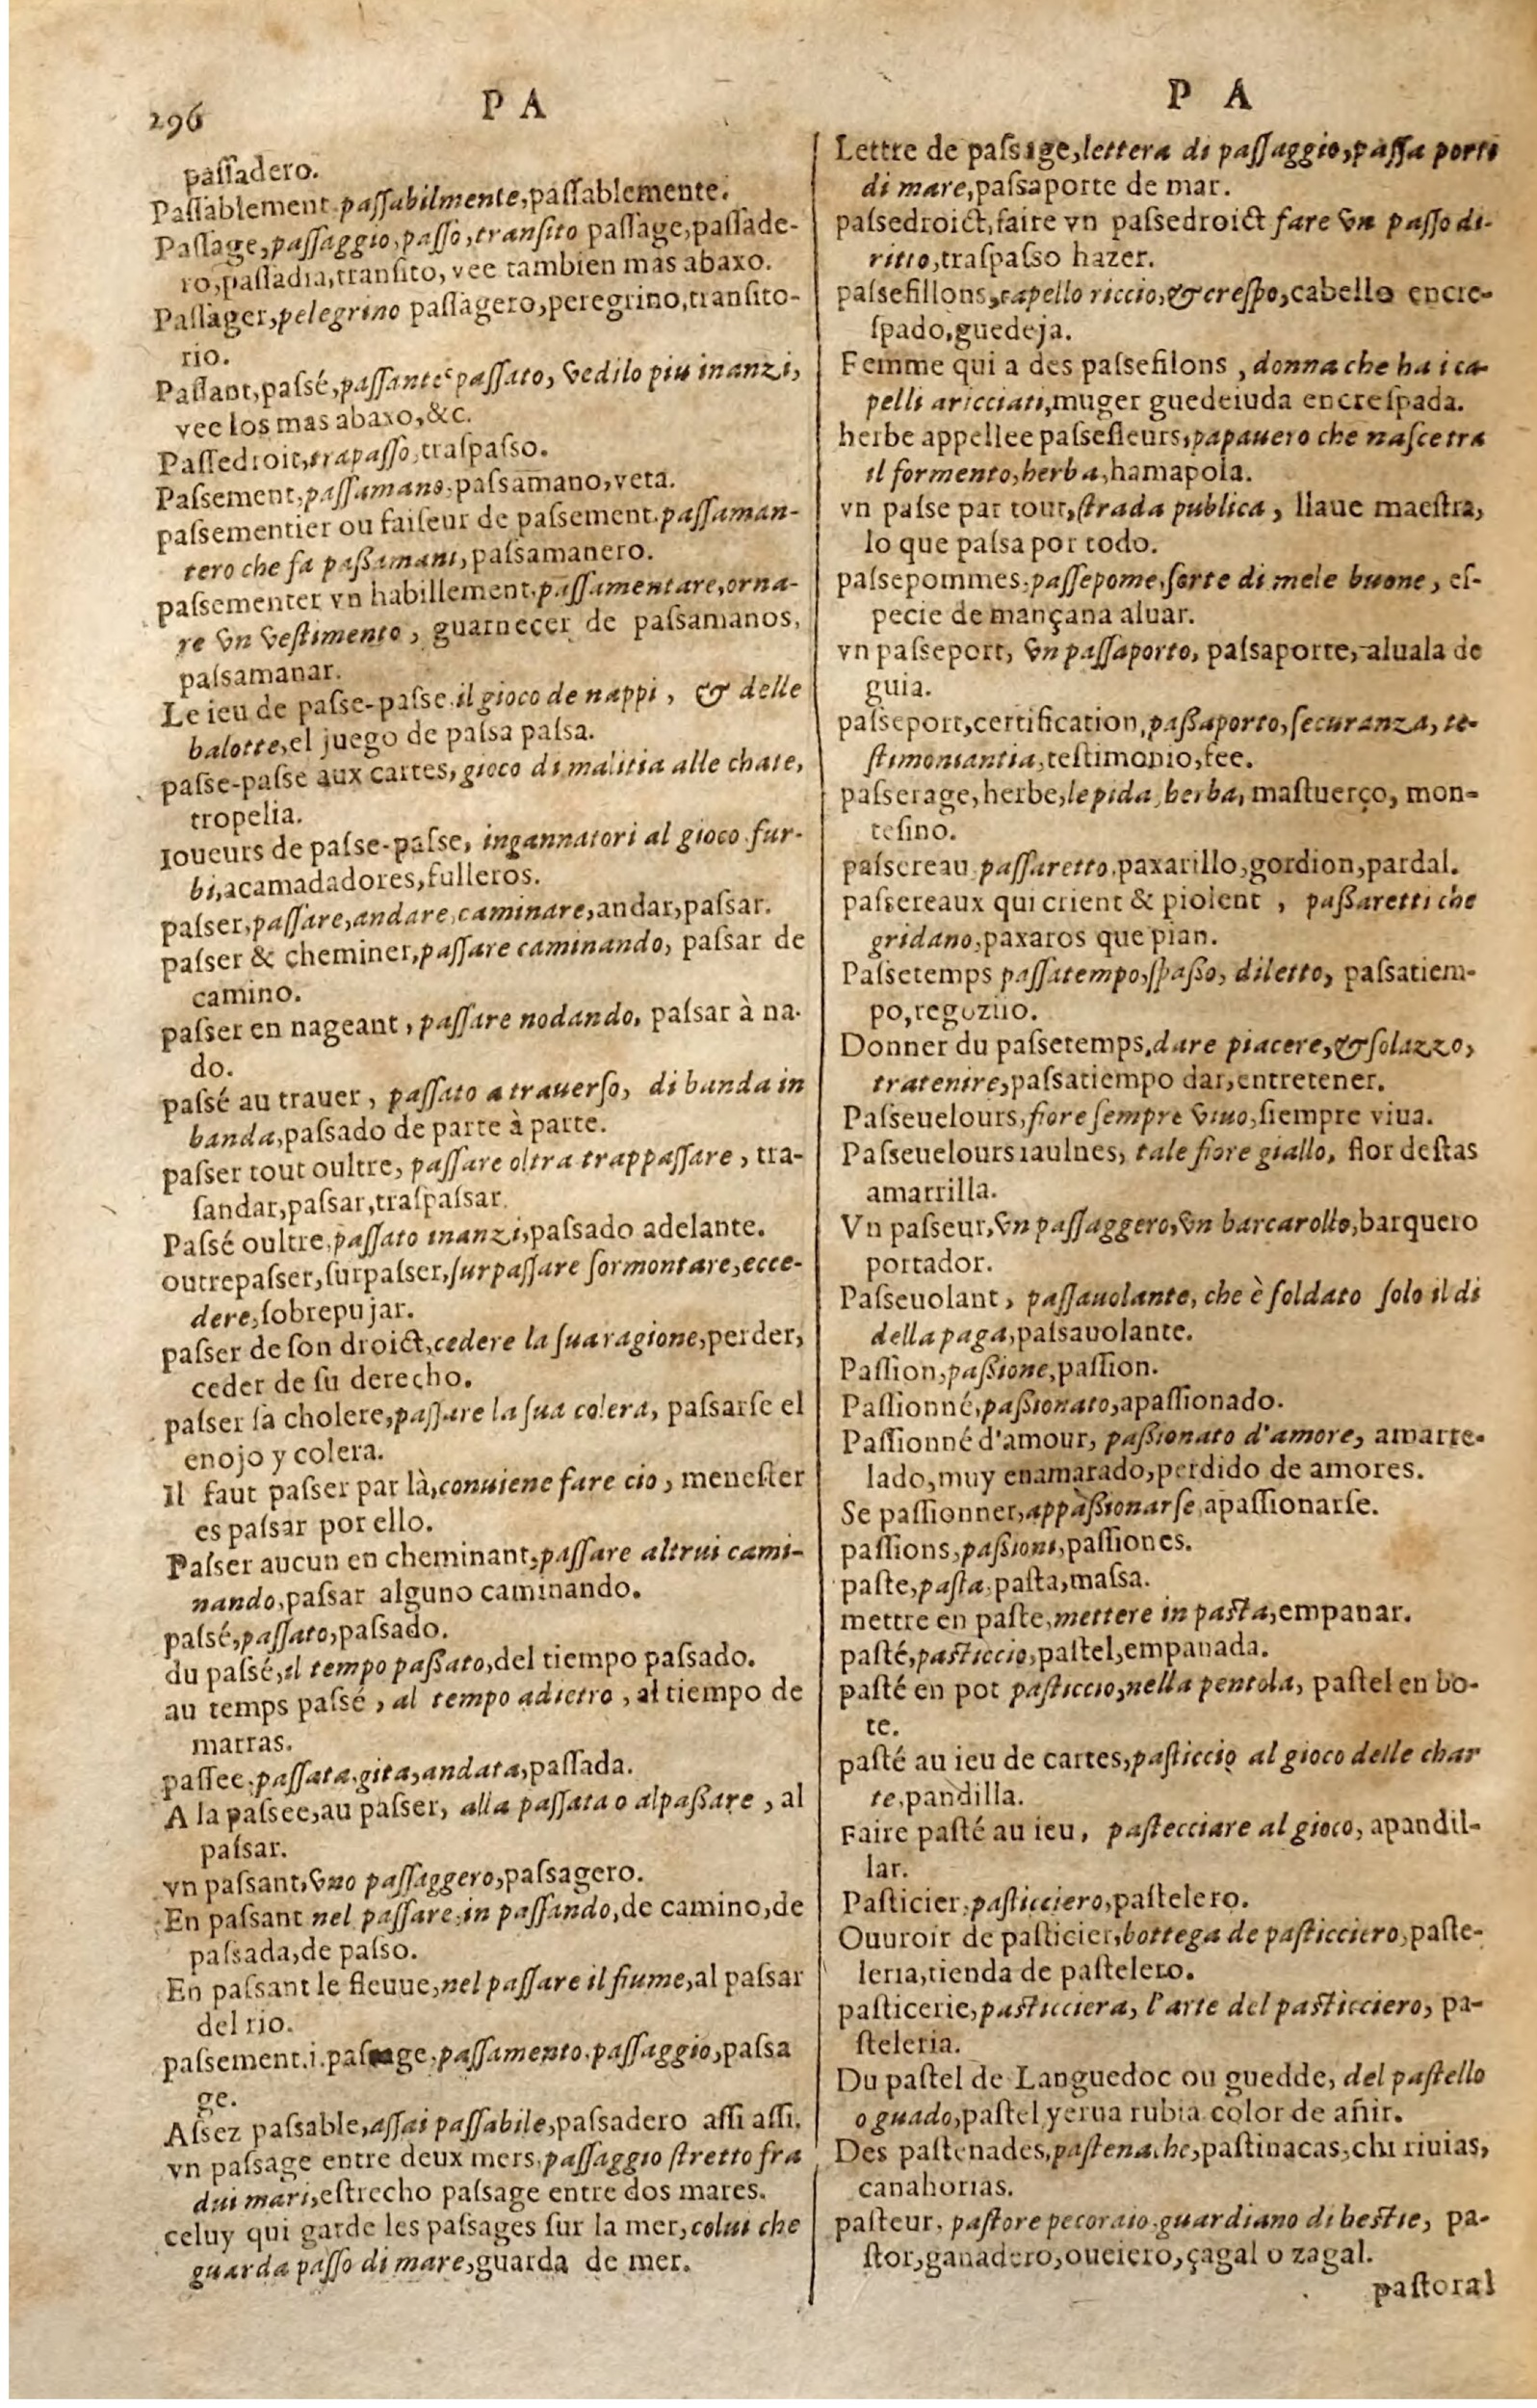 296
PA
paſſadero.
Paſſablement.paſſabilmente,paſſablemente.
Paſſage,paſſaggio,paſſo,tranſito paſſage,paſſade-
ro,paſſadia,tranſito,vee tambien mas abaxo.
Paſſager,pelegrino paſſagero,peregrino,tranſito-
rio.
Paſſant,paſsé,paſſante paſſato, vedilo piu inanzi,
vee los mas abaxo,&c.
Paſſedroit,trapaſſo,traſpaſso.
Paſsement,paſſamano,paſsamano,veta.
paſsementier ou faiſeur de paſsement.paſſaman-
tero che fa paßamani,paſsamanero.
paſsementer vn habillement.paſſamentare,orna-
re vn veſtimento, guarnecer de paſsamanos,
paſsamanar.
Le ieu de paſse-paſse.il gioco de nappi, & delle
balotte,el juego de paſsa paſsa.
paſse-paſse aux cartes,gioco di malitia alle chate,
tropelia.
Ioueurs de paſse-paſse, ingannatori al gioco fur-
bi,acamadadores,fulleros.
paſser,paſſare,andare,caminare,andar,paſsar.
paſser & cheminer,paſſare caminando, paſsar de
camino.
paſser en nageant, paſſare nodando, paſsar à na-
do.
paſsé au trauer, paſſato a trauerſo, di banda in
banda,paſsado de parte à parte.
paſser tout oultre, paſſare oltra trappaſſare, tra-
ſandar,paſsar,traſpaſsar.
Paſsé oultre,paſſato inanzi,paſsado adelante.
outrepaſser,ſurpaſser,ſurpaſſare ſormontare,ecce-
dere,ſobrepujar.
paſser de ſon droict,cedere la ſua ragione,perder,
ceder de ſu derecho.
paſser ſa cholere,paſſare la ſua colera, paſsarſe el
enojo y colera.
Il faut paſser par là,conuiene fare cio, meneſter
es paſsar por ello.
Paſser aucun en cheminant,paſſare altrui cami-
nando,paſsar alguno caminando.
paſsé,paſſato,paſsado.
du paſsé,il tempo paßato,del tiempo paſsado.
au temps paſsé, al tempo adietro, al tiempo de
matras.
paſſee,paſſata,gita,andata,paſſada.
A la paſsee,au paſser, alla paſſata o al paßare, al
paſsar.
vn paſsant,vno paſſaggero,paſsagero.
En paſsant nel paſſare,in paſſando,de camino,de
paſsada,de paſso.
En paſsant le fleuue,nel paſſare il fiume,al paſsar
del rio.
paſsement.i.paſsage.paſſamento.paſſaggio,paſsa
ge.
Aſsez paſsable,aſſai paſſabile,paſsadero aſſi aſſi.
vn paſsage entre deux mers.paſſaggio ſtretto fra
dui mari,eſtrecho paſsage entre dos mares.
celuy qui garde les paſsages ſur la mer,colui che
guarda paſſo di mare,guarda de mer.
PA
Lettre de paſsage,lettera di paſſaggio,paſſa porti
di mare,paſsaporte de mar.
paſsedroict,faire vn paſsedroict fare vn paſſo di-
ritto,traſpaſso hazer.
paſsefillons,capello riccio,& creſpo,cabello encre-
ſpado,guedeja.
Femme qui a des paſsefilons, donna che ha i ca-
pelli aricciati,muger guedeiuda encreſpada.
herbe appellee paſsefleurs,papauero che naſce tra
il formento,herba,hamapola.
vn paſse par tout,ſtrada publica, llaue maeſtra,
lo que paſsa por todo.
paſsepommes,paſſepome,ſorte di mele buone, eſ-
pecie de mançana aluar.
vn paſseport, vn paſſaporto, paſsaporte, aluala de
guia.
paſseport,certification,paßaporto,ſecuranza,te-
ſtimoniantia,teſtimonio,fee.
paſserage,herbe,lepida,herba, maſtuerço, mon-
teſino.
paſsereau paſſaretto.paxarillo,gordion,pardal.
paſsereaux qui crient & piolent, paßaretti che
gridano,paxaros que pian.
Paſsetemps paſſatempo,ſpaßo, diletto, paſsatiem-
po,regoziio.
Donner du paſsetemps,dare piacere,& ſolazzo,
tratenire,paſsatiempo dar,entretener.
Paſseuelours,fiore ſempre viuo,ſiempre viua.
Paſseuelours iaulnes, tale fiore giallo, flor deſtas
amarrilla.
Vn paſseur,vn paſſaggero,vn barcarollo,barquero
portador.
Paſseuolant, paſſauolante, che è ſoldato ſolo il di
della paga,paſsauolante.
Paſſion,paßione,paſſion.
Paſſionné,paßionato,apaſſionado.
Paſſionné d'amour, paßionato d'amore, amarte-
lado,muy enamarado,perdido de amores.
Se paſſionner,appaßionarſe,apaſſionarſe.
paſſions,paßioni,paſſiones.
paſte,paſta,paſta,maſsa.
mettre en paſte,mettere in paſta,empanar.
paſté,paſticcio,paſtel,empanada.
paſté en pot paſticcio,nella pentola, paſtel en bo-
te.
paſté au ieu de cartes,paſticcio al gioco delle char
te,pandilla.
Faire paſté au ieu, paſtecciare al gioco, apandil-
lar.
Paſticier,paſticciero,paſtelero.
Ouuroir de paſticier,bottega de paſticciero,paſte-
leria,tienda de paſtelero.
paſticerie,paſticciera, l'arte del paſticciero, pa-
ſteleria.
Du paſtel de Languedoc ou guedde, del paſtello
o guado,paſtel yerua rubia color de añir.
Des paſtenades,paſtenache,paſtinacas,chiriuias,
canahorias.
paſteur, paſtore pecoraio,guardiano di beſtie, pa-
ſtor,ganadero,oueiero,çagal o zagal.
paſtoral